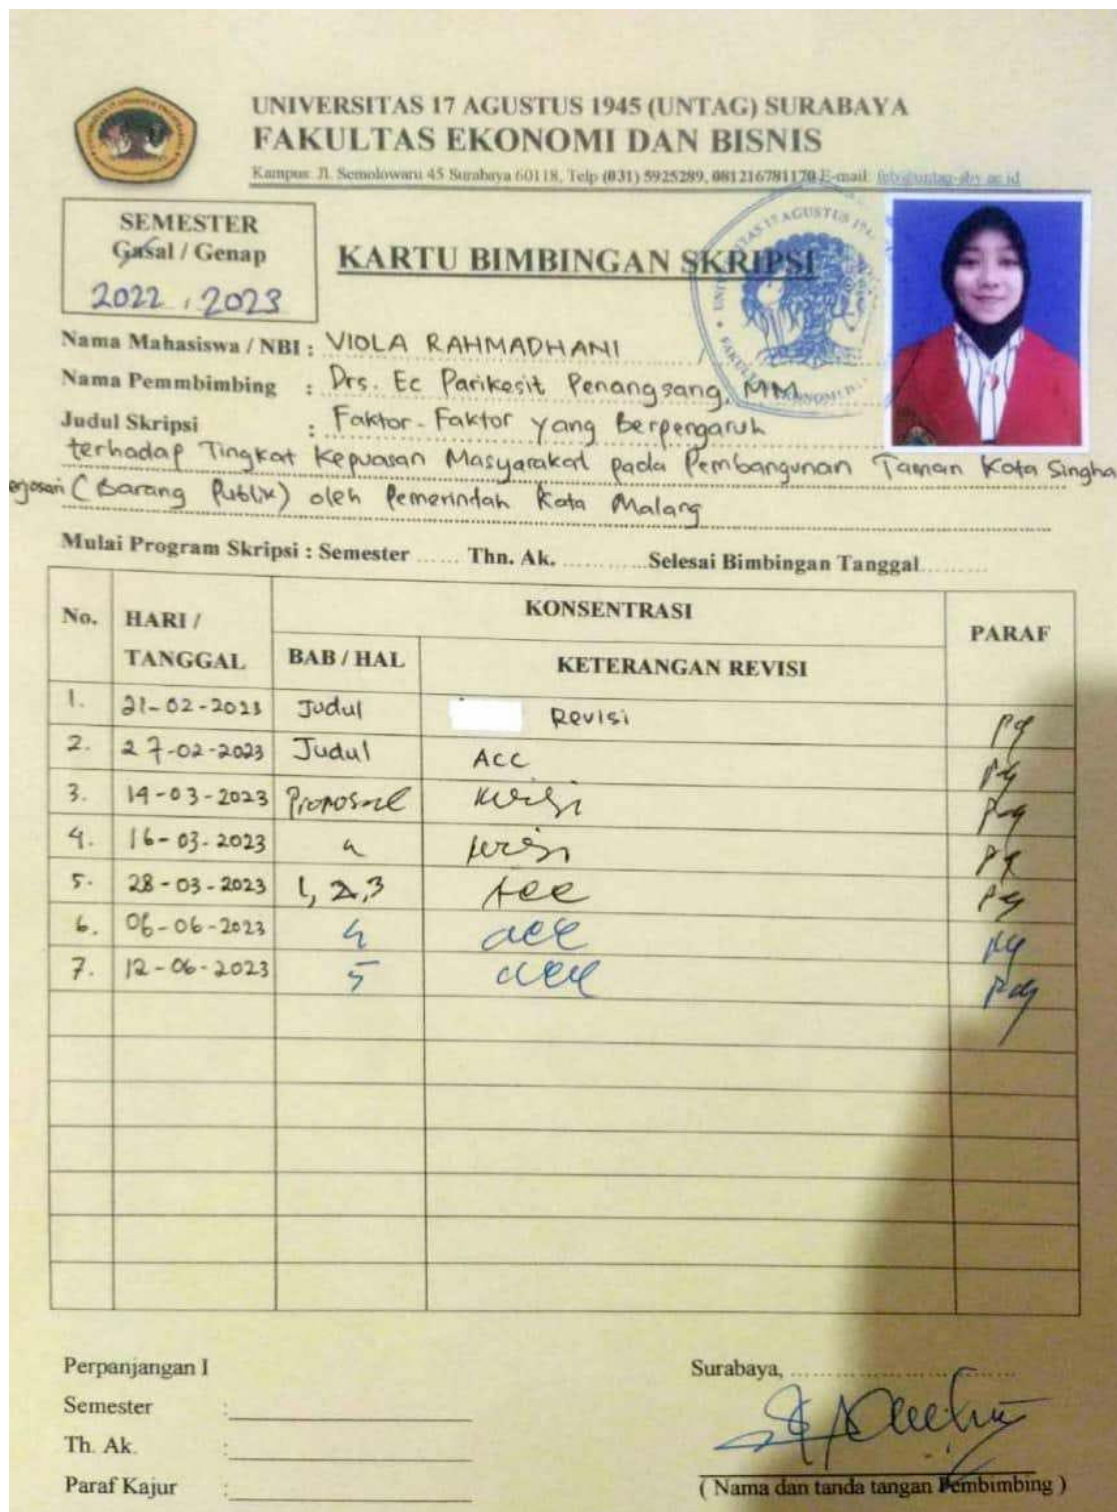 UNIVERSITAS 17 AGUSTUS 1945 (UNTAG) SURABAYA
FAKULTAS EKONOMI DAN BISNIS
Kampus: Jl. Semolowaru 45 Surabaya 60118, Telp (031) 5925289, 081216781170 E-mail: feb@untag-sby.ac.id
SEMESTER
Gasal / Genap
2022 / 2023
KARTU BIMBINGAN SKRIPSI
Nama Mahasiswa / NBI : VIOLA RAHMADHANI
Nama Pemmbimbing : Drs. Ec Parikesit Penangsang, MM
Judul Skripsi : Faktor-Faktor yang Berpengaruh
terhadap Tingkat Kepuasan Masyarakat pada Pembangunan Taman Kota Singha
(Barang Publik) oleh Pemerintah Kota Malang
Mulai Program Skripsi : Semester ...... Thn. Ak. ........... Selesai Bimbingan Tanggal.........
No. HARI / TANGGAL KONSENTRASI PARAF
BAB / HAL KETERANGAN REVISI
1. 21-02-2023 Judul Revisi
2. 27-02-2023 Judul ACC
3. 14-03-2023 Proposal revisi
4. 16-03-2023 revisi
5. 28-03-2023 1, 2, 3 Acc
6. 06-06-2023 4 acc
7. 12-06-2023 5 acc
Perpanjangan I
Semester :
Th. Ak. :
Paraf Kajur :
Surabaya, ..............................
( Nama dan tanda tangan Pembimbing )